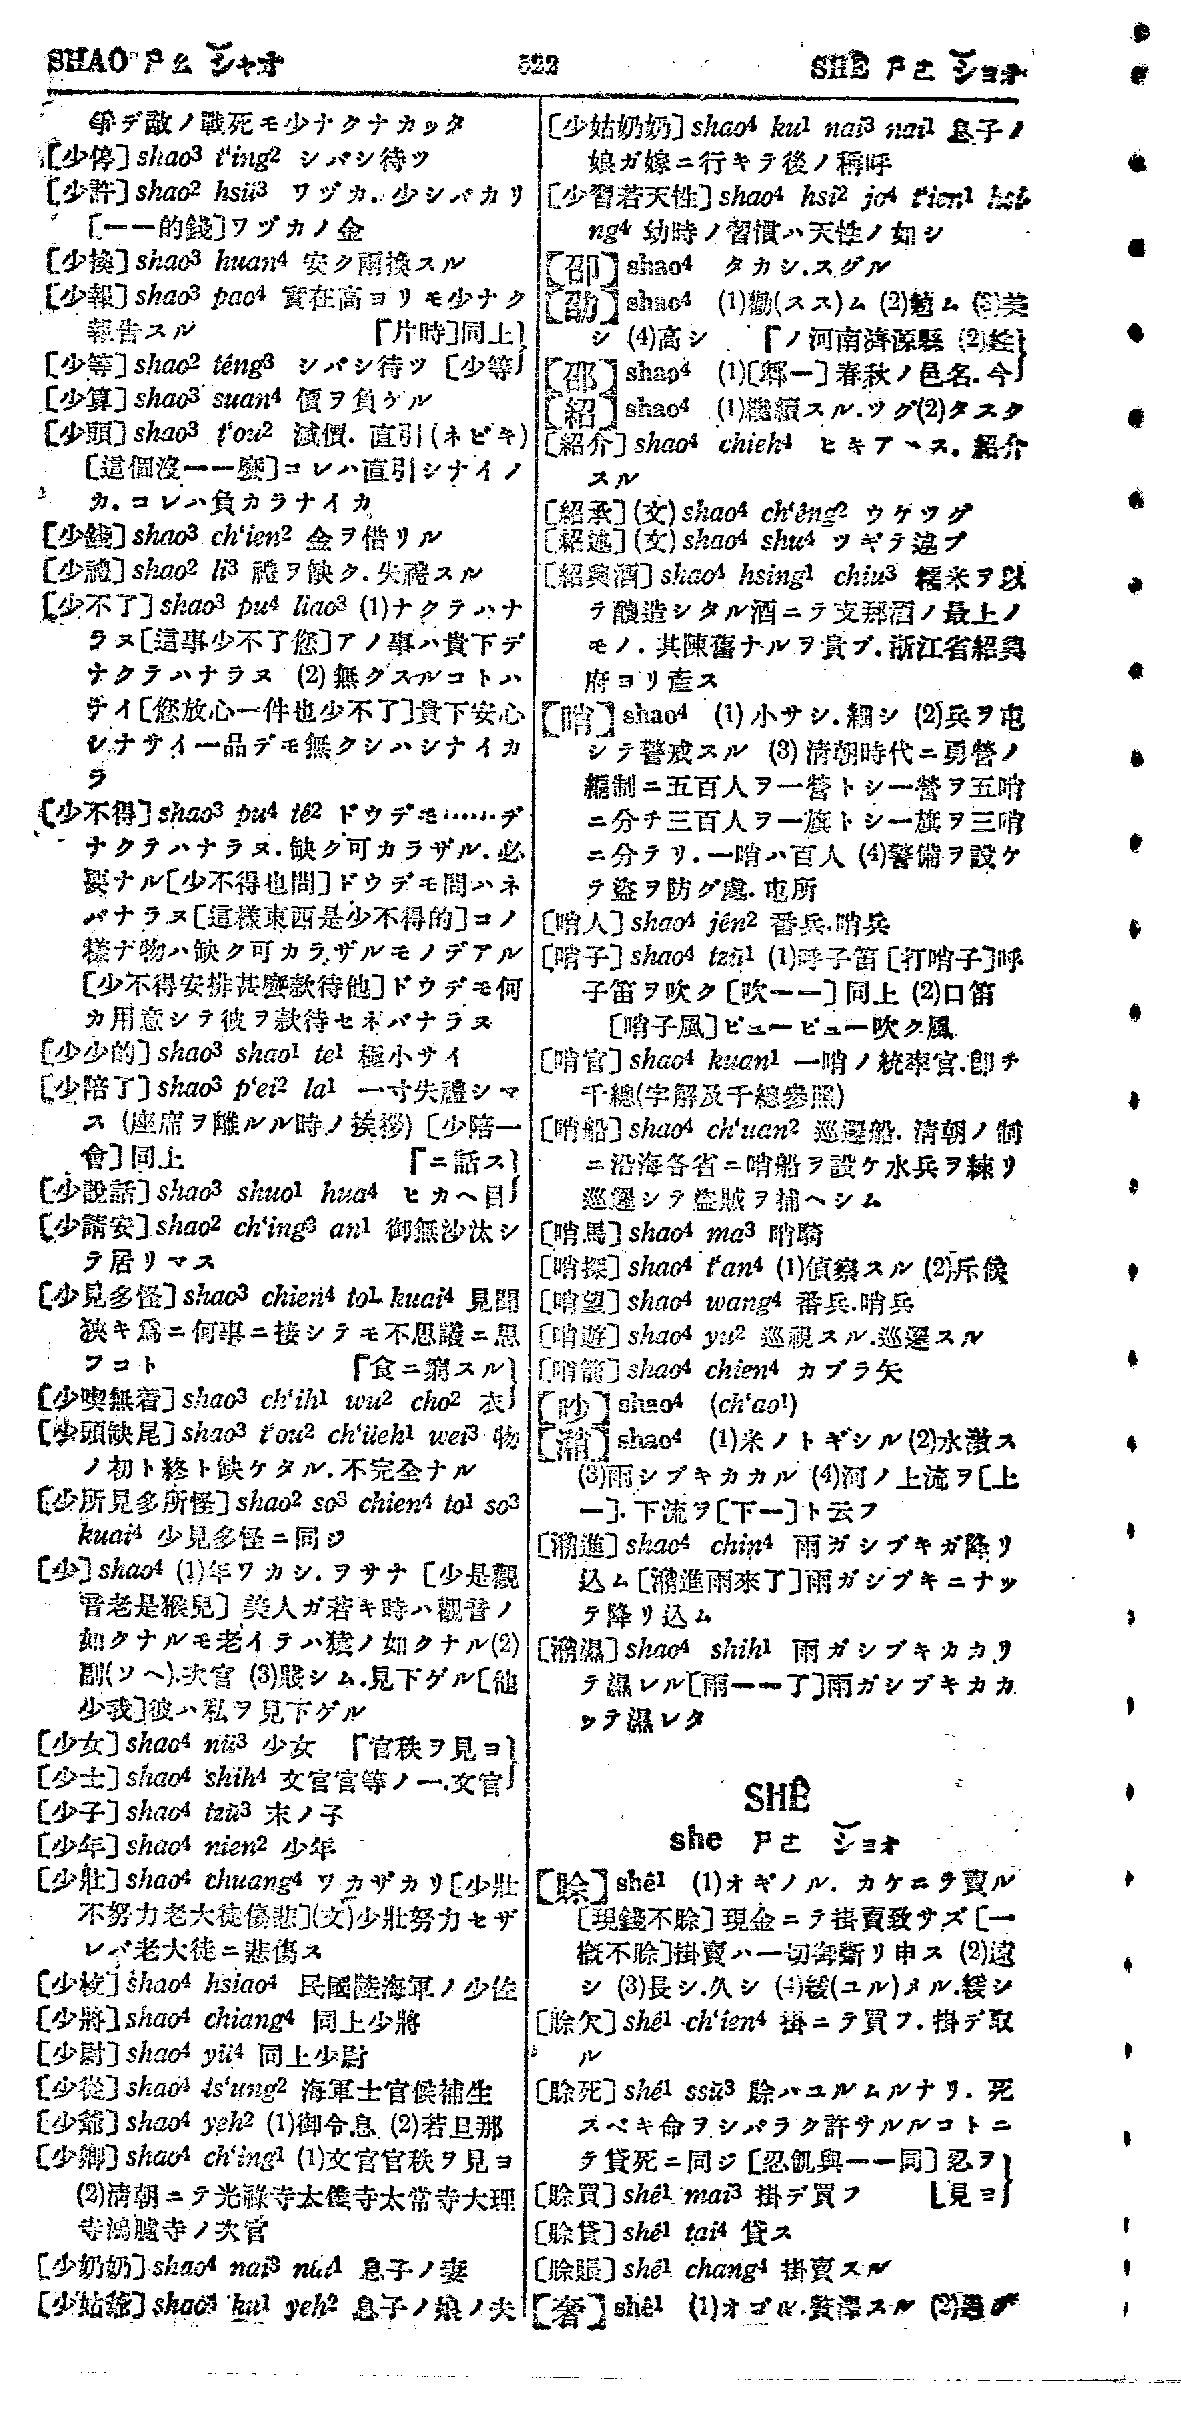 SHAO ㄕㄠ シャオ
522
SHÊ ㄕㄜ ショオ
デ敵ノ戰死モ少ナクナカッタ
[少停] shao³ t'ing² シバシ待ツ
[少許] shao² hsü³ ワヅカ.少シバカリ
[一一的錢]ワヅカノ金
[少換] shao³ huan⁴ 安ク兩換スル
[少報] shao³ pao⁴ 實在高ヨリモ少ナク
報告スル 『片時]同上]
[少等] shao² têng³ シバシ待ツ [少等
[少算] shao³ suan⁴ 價ヲ負ケル
[少頭] shao³ t'ou² 減價.直引(ネビキ)
[這個沒一一麼]コレハ直引シナイノ
カ.コレハ負カラナイカ
[少錢] shao³ ch'ien² 金ヲ借リル
[少禮] shao² li³ 禮ヲ缺ク.失禮スル
[少不了] shao³ pu⁴ liao³ (1)ナクテハナ
ラヌ[這事少不了您]アノ事ハ貴下デ
ナクテハナラヌ (2)無クスルコトハ
ナイ[您放心一件也少不了]貴下安心
シナサイ一品デモ無クシハシナイカ
ラ
[少不得] shao³ pu⁴ tê² ドウデモ……デ
ナクテハナラヌ.缺ク可カラザル.必
要ナル[少不得也問]ドウデモ問ハネ
バナラヌ[這樣東西是少不得的]コノ
樣ナ物ハ缺ク可カラザルモノデアル
[少不得安排甚麼款待他]ドウデモ何
カ用意シテ彼ヲ款待セネバナラヌ
[少少的] shao³ shao¹ te¹ 極小サイ
[少陪了] shao³ p'ei² la¹ 一寸失禮シマ
ス (座席ヲ離ルル時ノ挨拶) [少陪一
會]同上 『ニ話ス]
[少說話] shao³ shuo¹ hua⁴ ヒカヘ目
[少請安] shao² ch'ing³ an¹ 御無沙汰シ
テ居リマス
[少見多怪] shao³ chien⁴ to¹ kuai⁴ 見聞
狹キ爲ニ何事ニ接シテモ不思議ニ思
フコト 『食ニ窮スル]
[少喫無着] shao³ ch'ih¹ wu² cho² 衣
[少頭缺尾] shao³ t'ou² ch'üeh¹ wei³ 物
ノ初ト終ト缺ケタル.不完全ナル
[少所見多所怪] shao² so³ chien⁴ to¹ so³
kuai⁴ 少見多怪ニ同ジ
[少] shao⁴ (1)年ワカシ.ヲサナ [少是觀
音老是猴兒] 美人ガ若キ時ハ觀音ノ
如クナルモ老イテハ猿ノ如クナル(2)
副(ソヘ).次官 (3)賤シム.見下ゲル[他
少我]彼ハ私ヲ見下ゲル
[少女] shao⁴ nü³ 少女 『官秩ヲ見ヨ]
[少士] shao⁴ shih⁴ 文官官等ノ一.文官
[少子] shao⁴ tzŭ³ 末ノ子
[少年] shao⁴ nien² 少年
[少壯] shao⁴ chuang⁴ ワカザカリ[少壯
不努力老大徒傷悲](文)少壯努力セザ
レバ老大徒ニ悲傷ス
[少校] shao⁴ hsiao⁴ 民國陸海軍ノ少佐
[少將] shao⁴ chiang⁴ 同上少將
[少尉] shao⁴ yü⁴ 同上少尉
[少從] shao⁴ ts'ung² 海軍士官候補生
[少爺] shao⁴ yeh² (1)御令息 (2)若旦那
[少卿] shao⁴ ch'ing¹ (1)文官官秩ヲ見ヨ
(2)清朝ニテ光祿寺太僕寺太常寺大理
寺鴻臚寺ノ次官
[少奶奶] shao⁴ nai³ nai¹ 息子ノ妻
[少姑爺] shao⁴ ku¹ yeh² 息子ノ娘ノ夫
[少姑奶奶] shao⁴ ku¹ nai³ nai¹ 息子ノ
娘ガ嫁ニ行キテ後ノ稱呼
[少習若天性] shao⁴ hsi² jo⁴ t'ien¹ hsi-
ng⁴ 幼時ノ習慣ハ天性ノ如シ
[卲] shao⁴ タカシ.スグル
[劭] shao⁴ (1)勸(スス)ム (2)勉ム (3)美
シ (4)高シ 『ノ河南濟源縣 (2)姓]
[邵] shao⁴ (1)[郫一]春秋ノ邑名.今
[紹] shao⁴ (1)繼續スル.ツグ(2)タスク
[紹介] shao⁴ chieh⁴ ヒキアハス.紹介
スル
[紹承](文) shao⁴ ch'êng² ウケツグ
[紹述](文) shao⁴ shu⁴ ツギテ述ブ
[紹興酒] shao⁴ hsing¹ chiu³ 糯米ヲ以
テ釀造シタル酒ニテ支那酒ノ最上ノ
モノ.其陳舊ナルヲ貴ブ.浙江省紹興
府ヨリ產ス
[哨] shao⁴ (1)小サシ.細シ (2)兵ヲ屯
シテ警戒スル (3)清朝時代ニ勇營ノ
編制ニ五百人ヲ一營トシ一營ヲ五哨
ニ分チ三百人ヲ一旗トシ一旗ヲ三哨
ニ分テリ.一哨ハ百人 (4)警備ヲ設ケ
テ盜ヲ防グ處.屯所
[哨人] shao⁴ jên² 番兵.哨兵
[哨子] shao⁴ tzŭ¹ (1)呼子笛[打哨子]呼
子笛ヲ吹ク[吹一一]同上 (2)口笛
[哨子風]ビュービュー吹ク風
[哨官] shao⁴ kuan¹ 一哨ノ統率官.卽チ
千總(字解及千總參照)
[哨船] shao⁴ ch'uan² 巡邏船.清朝ノ制
ニ沿海各省ニ哨船ヲ設ケ水兵ヲ練リ
巡邏シテ盜賊ヲ捕ヘシム
[哨馬] shao⁴ ma³ 哨騎
[哨探] shao⁴ t'an⁴ (1)偵察スル (2)斥候
[哨望] shao⁴ wang⁴ 番兵.哨兵
[哨遊] shao⁴ yu² 巡視スル.巡邏スル
[哨箭] shao⁴ chien⁴ カブラ矢
[吵] shao⁴ (ch'ao¹)
[潲] shao⁴ (1)米ノトギシル(2)水激ス
(3)雨シブキカカル (4)河ノ上流ヲ[上
一].下流ヲ[下一]ト云フ
[潲進] shao⁴ chin⁴ 雨ガシブキガ降リ
込ム[潲進雨來了]雨ガシブキニナッ
テ降リ込ム
[潲濕] shao⁴ shih¹ 雨ガシブキカカリ
テ濕レル[雨一一了]雨ガシブキカカ
ッテ濕レタ
SHÊ
she ㄕㄜ ショオ
[賒] shê¹ (1)オギノル.カケニテ賣ル
[現錢不賒]現金ニテ掛賣致サズ[一
概不賒]掛賣ハ一切御斷リ申ス (2)遠
シ (3)長シ.久シ (4)緩(ユル)メル.緩シ
[賒欠] shê¹ ch'ien⁴ 掛ニテ買フ.掛デ取
ル
[賒死] shê¹ ssŭ³ 賒ハユルムルナリ.死
スベキ命ヲシバラク許サルルコトニ
テ貸死ニ同ジ[忍飢與一一同]忍ヲ]
[賒買] shê¹ mai³ 掛デ買フ [見ヨ]
[賒貸] shê¹ tai⁴ 貸ス
[賒賬] shê¹ chang⁴ 掛賣スル
[奢] shê¹ (1)オゴル.贅澤スル (2)過グ